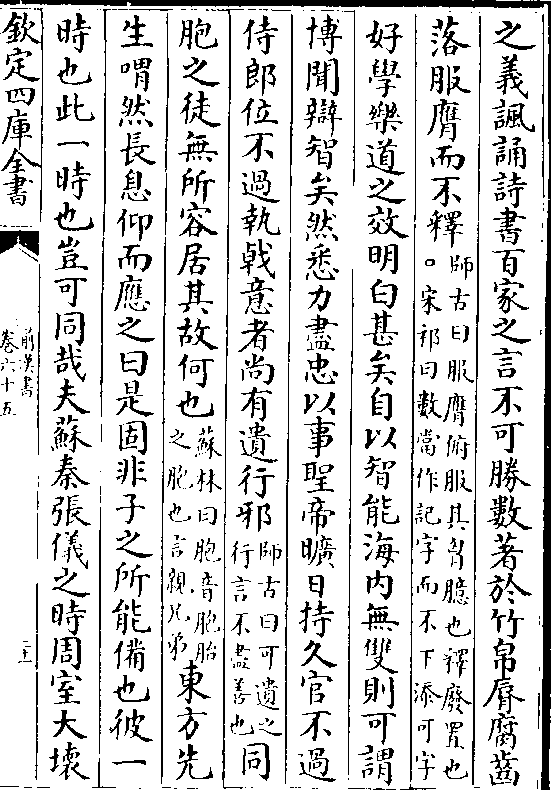 之義諷誦詩書百家之言不可勝數著於竹帛脣腐齒
落服膺而不釋師古曰服膺俯服其胷臆也釋廢置也。宋祁曰數當作記字而不下添可字
好學樂道之效明白甚矣自以智能海内無雙則可謂
博聞辯智矣然悉力盡忠以事聖帝曠日持久官不過
侍郎位不過執戟意者尚有遺行邪師古曰可遺之行言不盡善也同
胞之徒無所容居其故何也蘇林曰胞音胞胎之胞也言親兄弟東方先
生喟然長息仰而應之曰是固非子之所能備也彼一
時也此一時也豈可同哉夫蘇秦張儀之時周室大壞
欽定四庫全書
前漢書
卷六十五